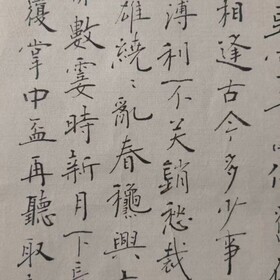 相逢古今多少事
薄利不关銷愁裁
雄繞〻亂春龝興
數霎時新月下長
覆掌中盃再聽取